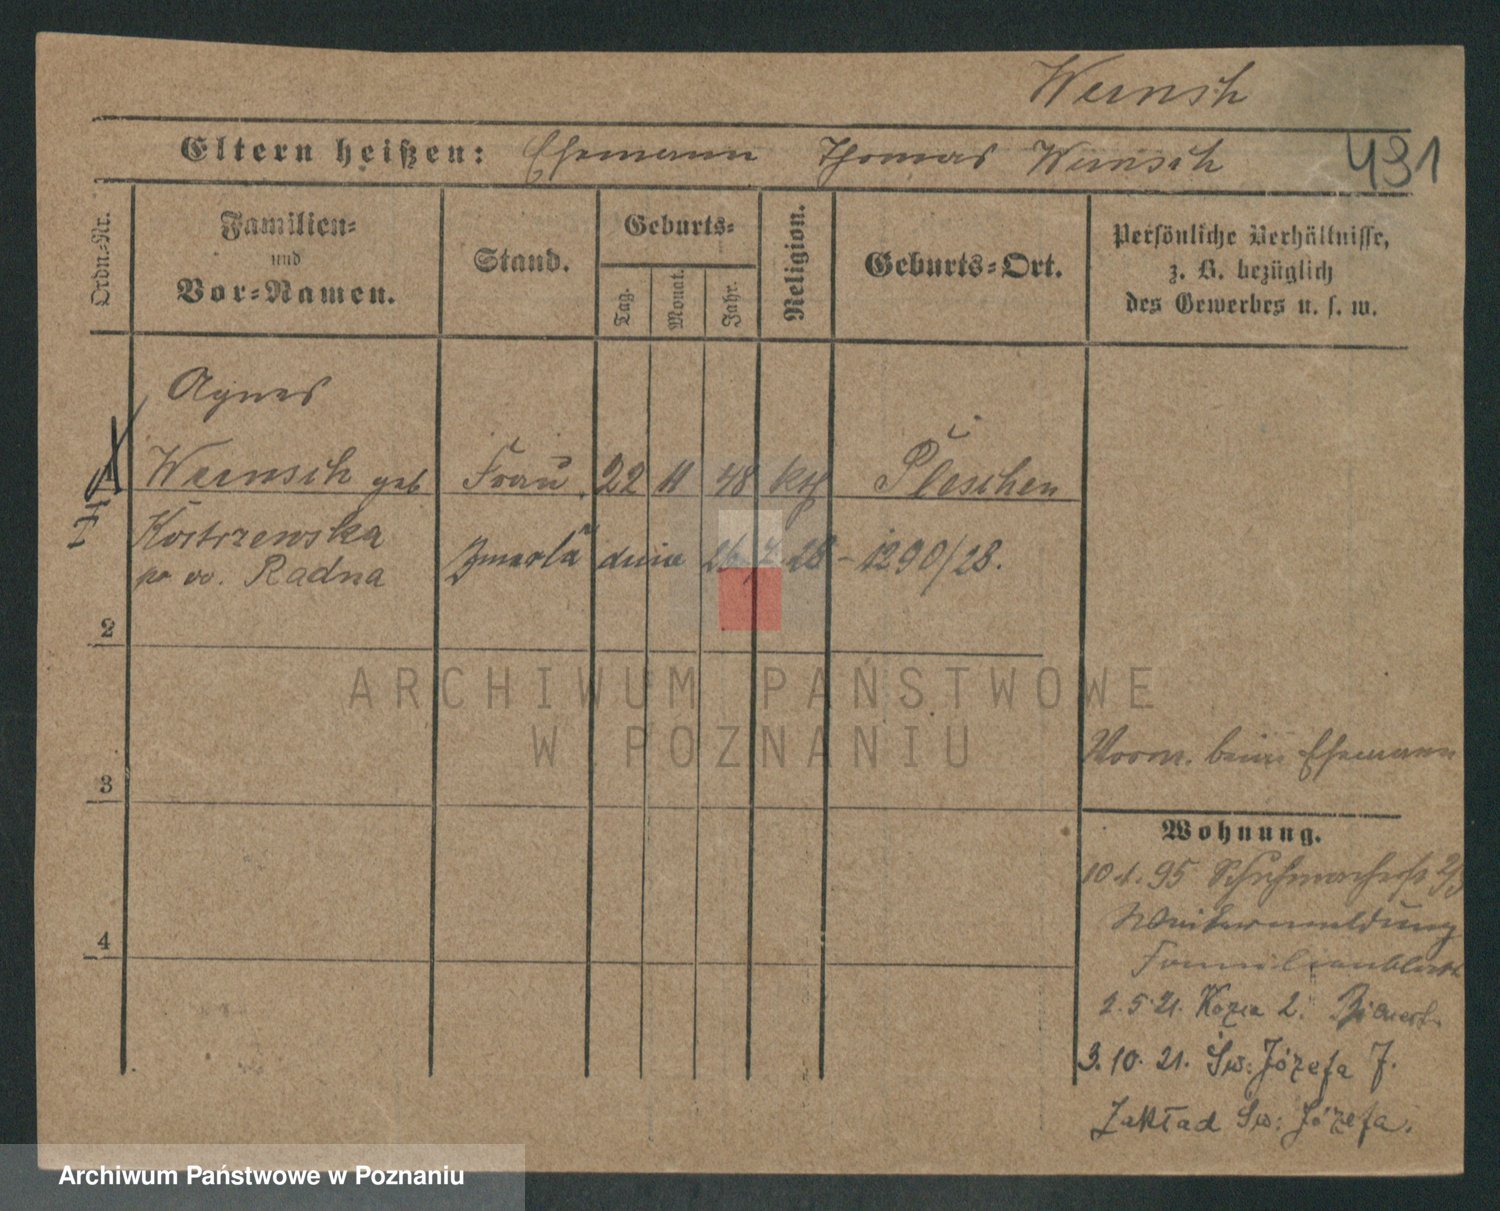 Wernsch
Eltern heißen: Ehemann Thomas Wernsch 431
Ordn.-Nr.
Familien-
und
Vor-Namen.
Stand.
Geburts-
Tag.
Monat.
Jahr.
Religion.
Geburts-Ort.
Persönliche Verhältnisse,
z. B. bezüglich
des Gewerbes u. s. w.
Agnes
Wernsch geb Frau. 22 11 48 kth Pleschen
Kostrzewska
Zmarła dnia 26.7.28 - 1290/28.
Radna
2
ARCHIWUM PAŃSTWOWE
W POZNANIU
Vorm. beim Ehemann
3
Wohnung.
10.1.95 Schuhmacherst
Weitermeldung
4
Familienblatt
2.5.21. Kozia 2.
3.10.21. Św: Józefa 7.
Zakład Św: Józefa.
Archiwum Państwowe w Poznaniu